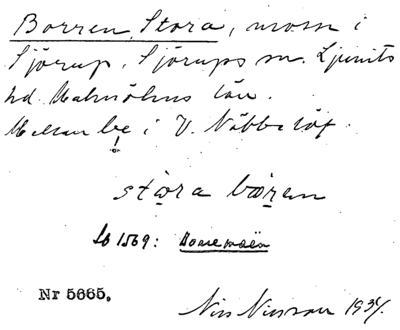 Borren, Stora, mosse i
Sjörup, Sjörups sn. Ljunits
hd. Malmöhus län.
Mellan be i V. Nöbbelöf.
!
stora bören
Lb 1569:
Nr 5665.
Nils Nilsson 1934.